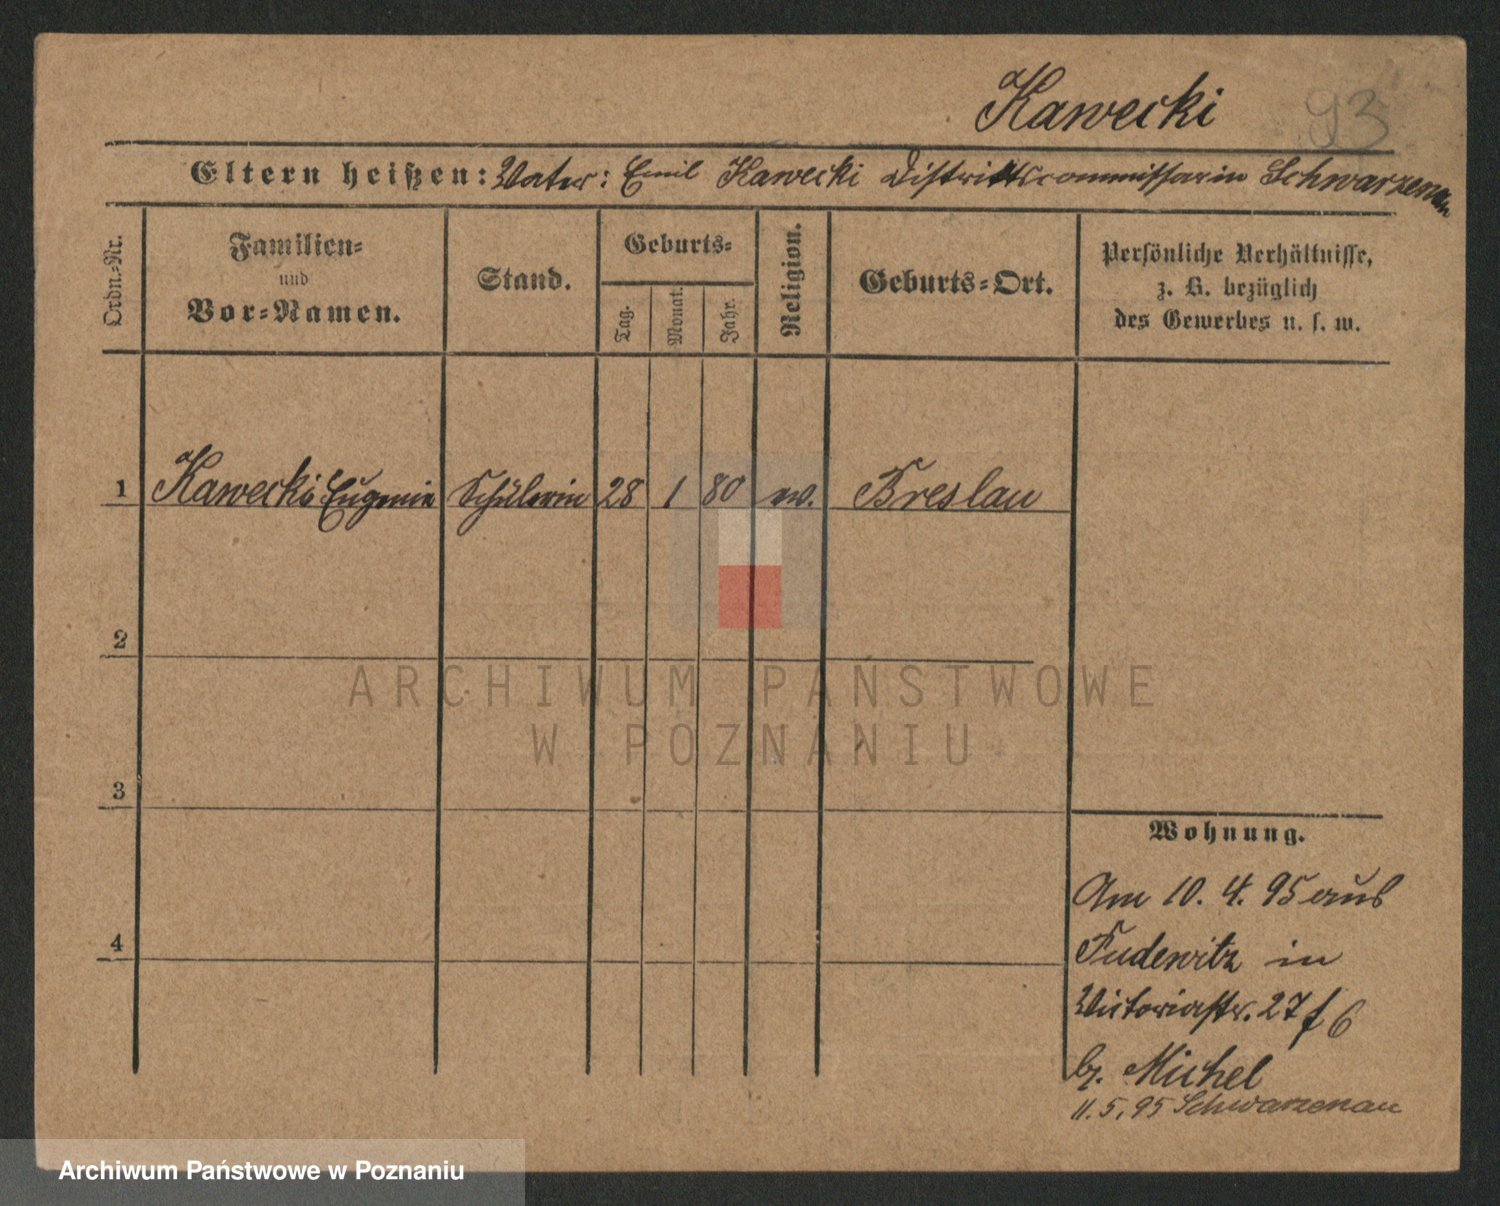 Kawecki 93
Eltern heißen: Vater: Emil Kawecki Distriktscommissar in Schwarzenau
Ordn.-Nr.
Familien-
und
Vor-Namen.
Stand.
Geburts-
Tag.
Monat.
Jahr.
Religion.
Geburts-Ort.
Persönliche Verhältnisse,
z. B. bezüglich
des Gewerbes u. s. w.
1 Kawecki Eugenie Schülerin 28 1 80 ev. Breslau
2
ARCHIWUM PAŃSTWOWE
W POZNANIU
3
Wohnung.
4
Am 10. 4. 95 aus
Pudewitz in
Victoriastr. 27 f 6
bz. Michel
11. 5. 95 Schwarzenau
Archiwum Państwowe w Poznaniu